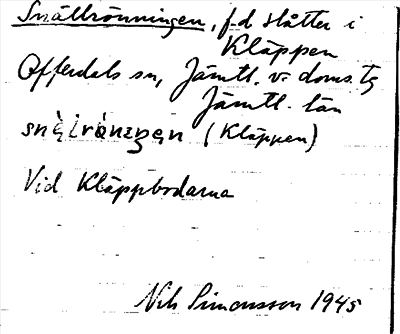 Snällrönningen, f.d slåtter i
Kläppen
Offerdals sn, Jämtl. v. doms. tg
Jämtl. län
snèlrǿnıŋen (Kläppen)
Vid Kläppbodarna
Nils Simonsson 1945